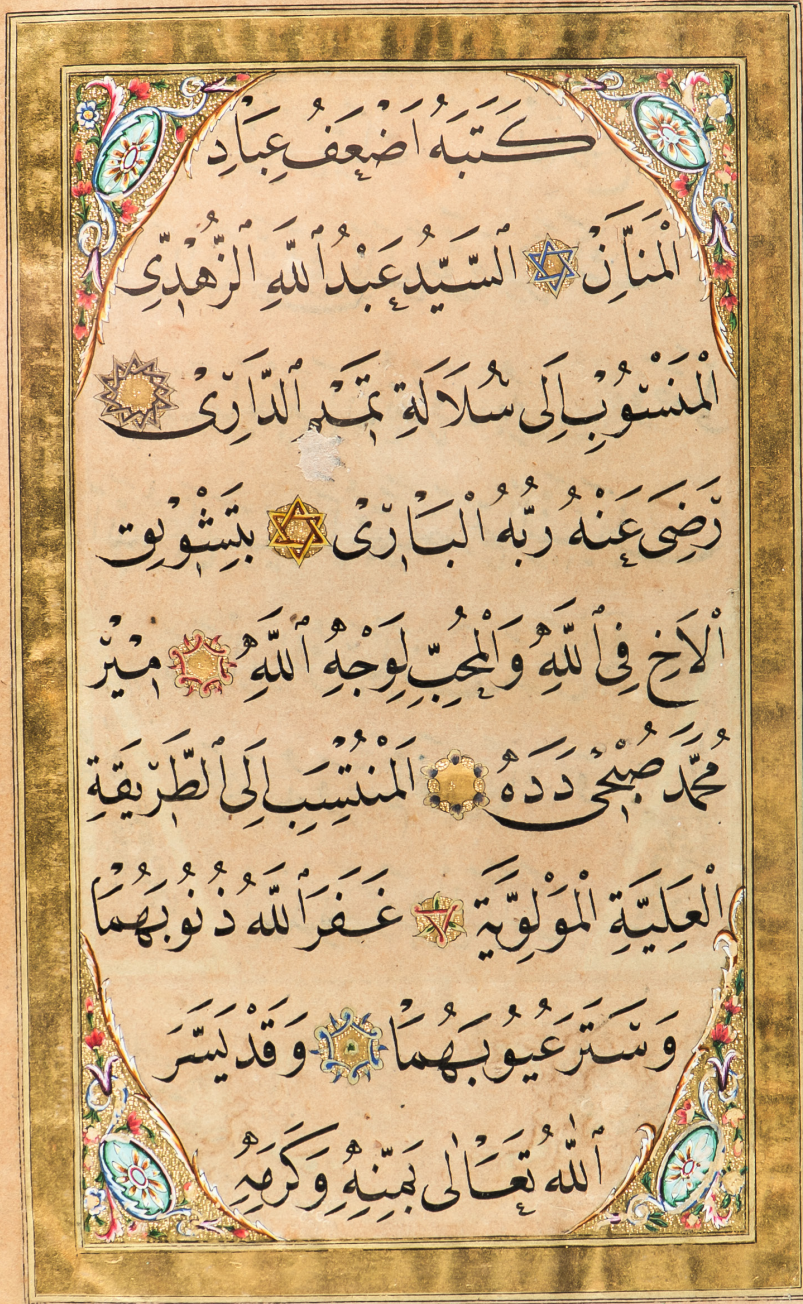 كَتَبَهُ اَضْعَفُ عِبَادِ
الْمَنَّانِ السَّيِّدُ عَبْدُ اللّٰهِ الزُّهْدِی
الْمَنْسُوبُ اِلَى سُلَالَةِ تَمِيمِ الدَّارِیْ
رَضِىَ عَنْهُ رَبُّهُ الْبَارِیْ بِتَشْوِيقِ
الْاَخِ فِى اللّٰهِ وَالْمُحِبِّ لِوَجْهِ اللّٰهِ مِيرْ
مُحَمَّد صُبْحِى دَدَه الْمُنْتَسِبِ اِلَى الطَّرِيقَةِ
الْعَلِيَّةِ الْمَوْلَوِيَّةِ غَفَرَ اللّٰهُ ذُنُوبَهُمَا
وَسَتَرَ عُيُوبَهُمَا وَقَدْ يَسَّرَ
اللّٰهُ تَعَالٰى بِمَنِّهِ وَكَرَمِهِ